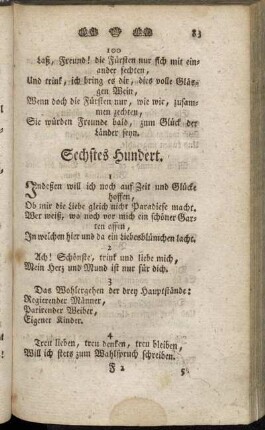 83
100
Laß, Freund! die Fürsten nur sich mit ein-
ander fechten,
Und trink, ich bring es dir, dies volle Gläs-
gen Wein,
Wenn doch die Fürsten nur, wie wir, zusam-
men zechten,
Sie würden Freunde bald, zum Glück der
Länder seyn.
Sechstes Hundert.
1
Indeßen will ich noch auf Zeit und Glücke
hoffen,
Ob mir die Liebe gleich nicht Paradiese macht.
Wer weiß, wo noch vor mich ein schöner Gar-
ten offen,
In welchen hier und da ein Liebesblümchen lacht.
2
Ach! Schönste, trink und liebe mich,
Mein Herz und Mund ist nur für dich.
3
Das Wohlergehen der drey Hauptstände:
Regierender Männer,
Parirender Weiber,
Eigener Kinder.
4
Treu lieben, treu denken, treu bleiben,
Will ich stets zum Wahlspruch schreiben.
F 2